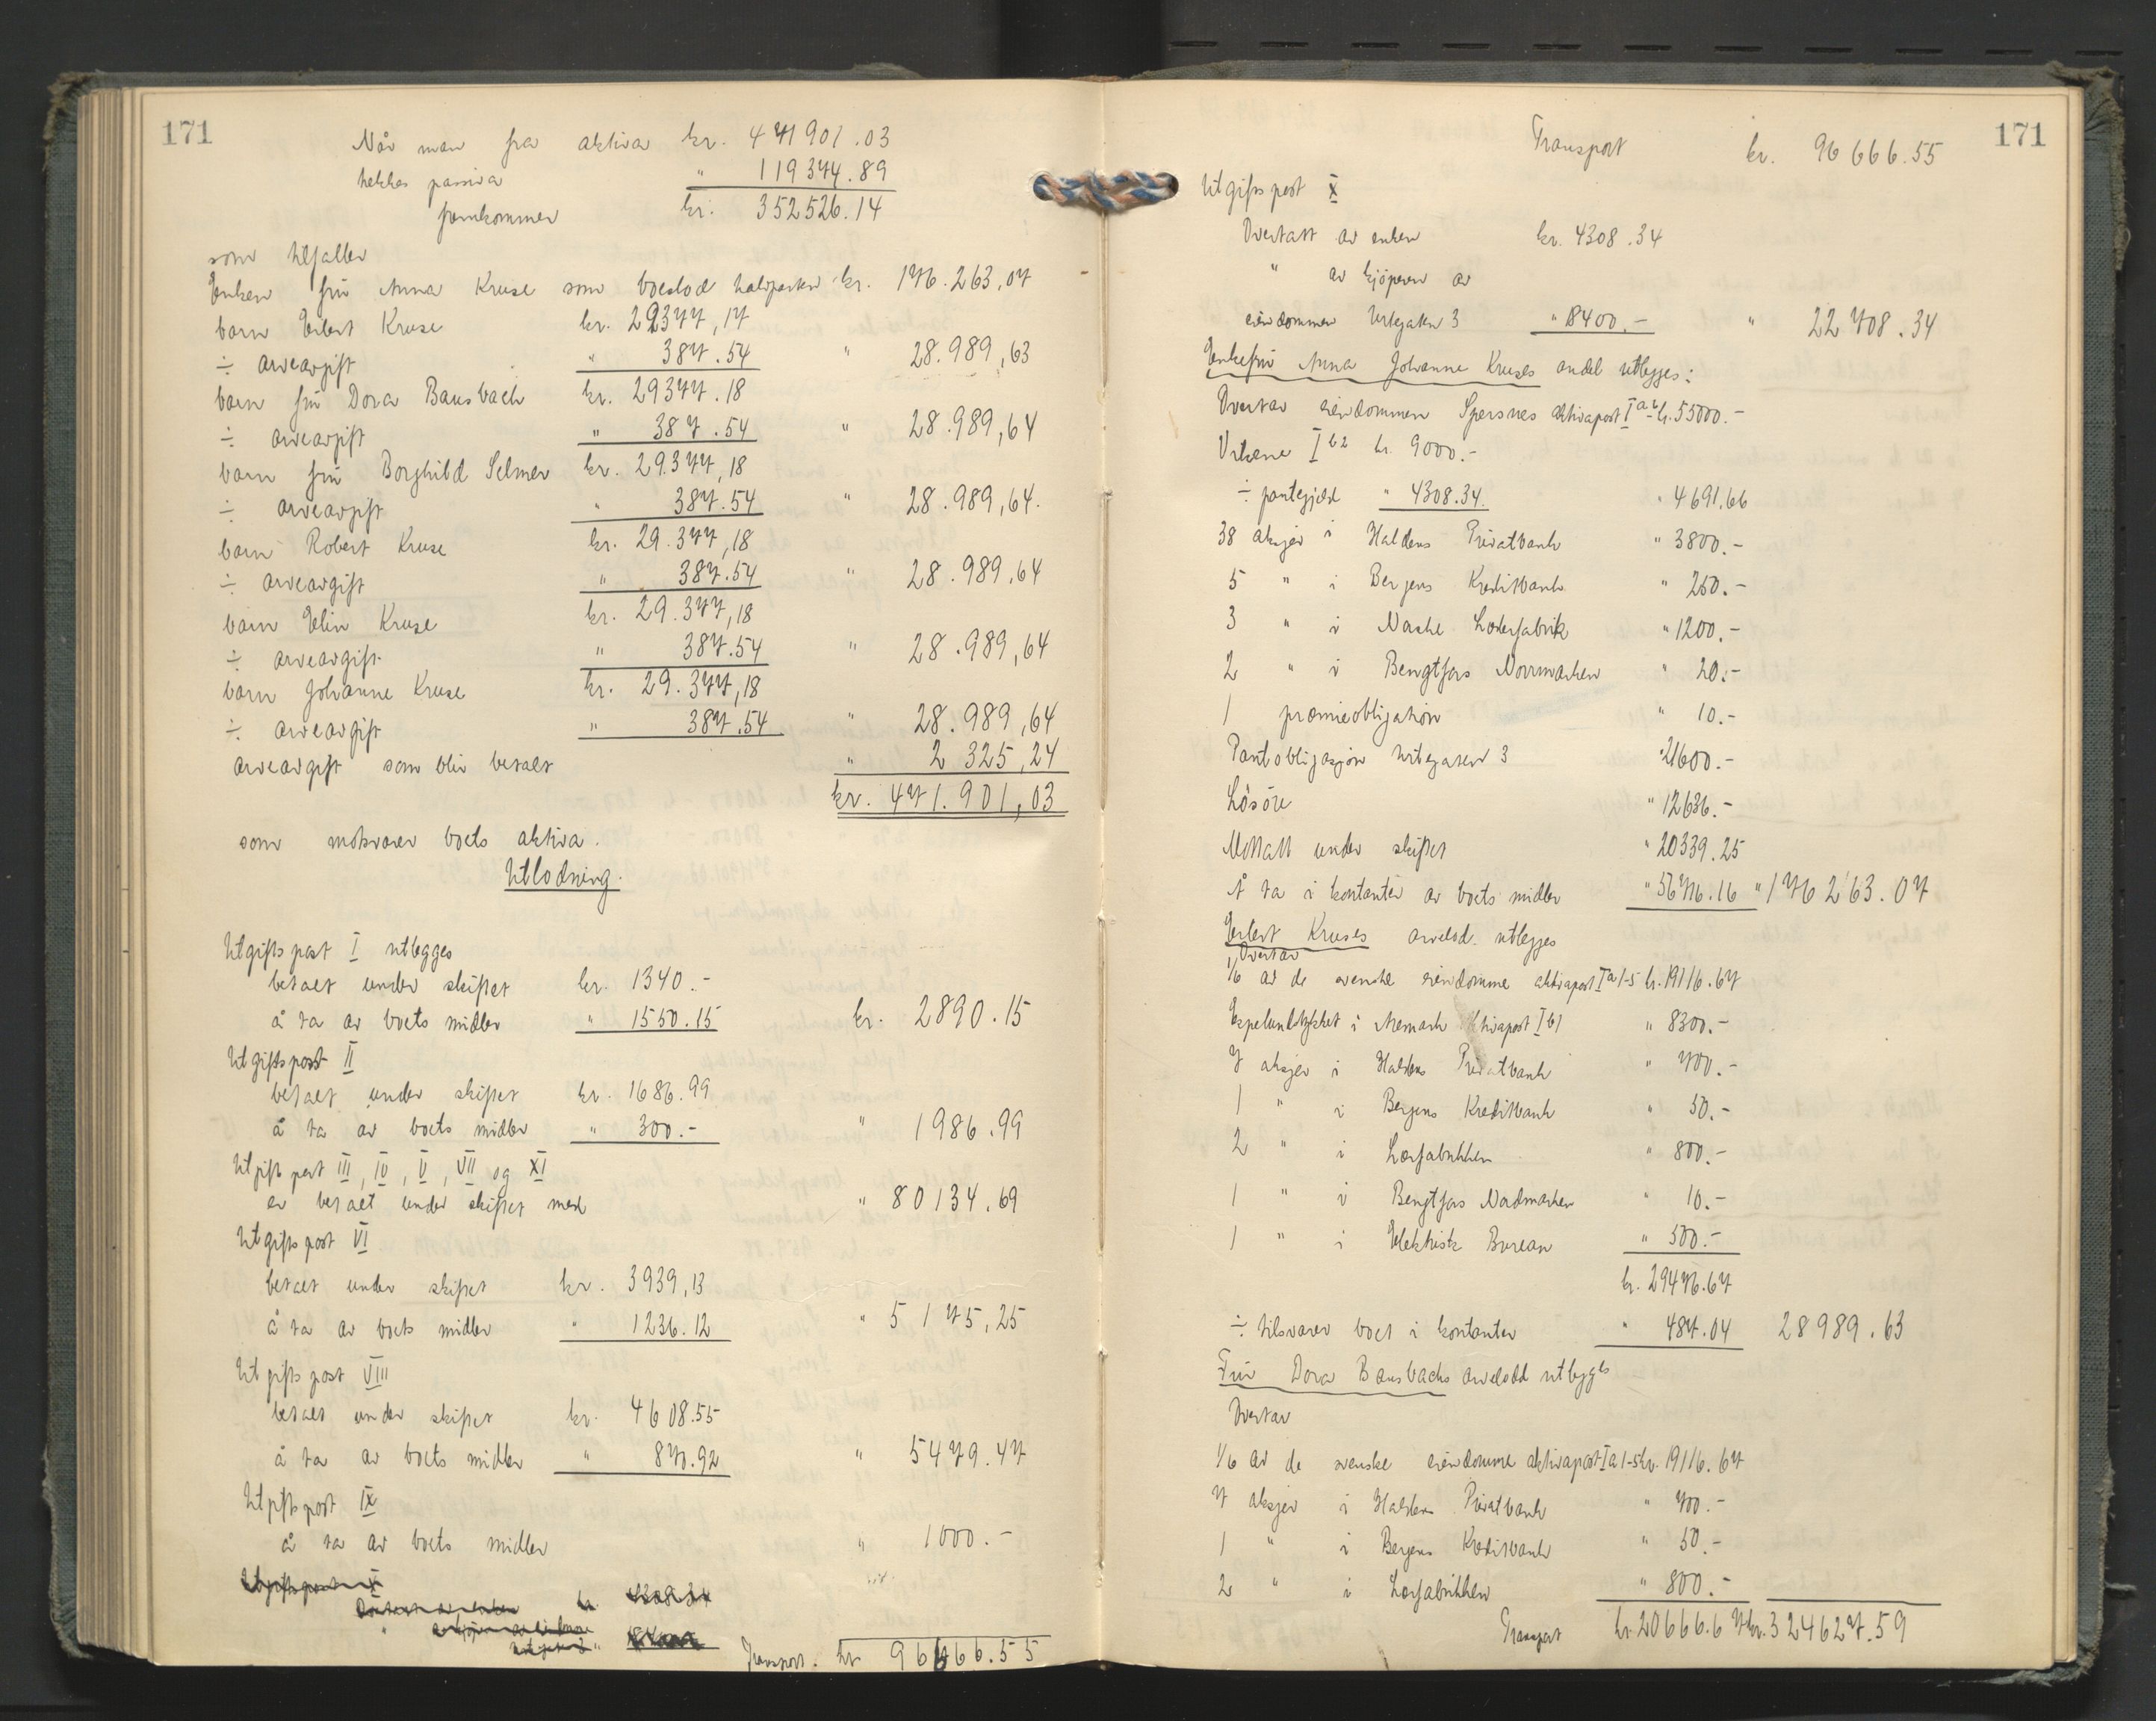 171
Når man fra aktiva kr. 471901.03
trekkes passiva " 119374.89
fremkommer kr. 352526.14
som tilfaller
Enken fru Anna Kruse som boeslod halvparten kr. 176.263,07
barn Eilert Kruse kr. 29377,17
÷ arveavgift " 387.54 " 28.989,63
barn fru Dora Bausbach kr. 29377.18
÷ arveavgift " 387.54 " 28.989,64
barn fru Borghild Selmer kr. 29.377,18
÷ arveavgift " 387.54 " 28.989,64.
barn Robert Kruse kr. 29.377,18
÷ arveavgift " 387.54 " 28.989,64
barn Elin Kruse kr. 29.377,18
÷ arveavgift " 387.54 " 28.989,64
barn Johanne Kruse kr. 29.377,18
÷ arveavgift " 387.54 " 28.989,64
arveavgift som blir betalt " 2325,24
kr. 471.901,03
som motsvarer boets aktiva.
Utlodning.
Utgiftspost I utlegges
betalt under skiftet kr. 1340.-
å ta av boets midler " 1550.15 kr. 2890.15
Utgiftspost II
betalt under skiftet kr. 1686.99
å ta av boets midler " 300.- " 1986.99
Utgiftspost III, IV, V, VII og XI
er betalt under skiftet med " 80134.69
Utgiftspost VI
betalt under skiftet kr. 3939,13
å ta av boets midler " 1236.12 " 5175,25
Utgiftspost VIII
betalt under skiftet kr. 4608.55
å ta av boets midler " 870.92 " 5479.47
Utgiftspost IX
å ta av boets midler " 1000.-
Utgiftspost X
Overtatt av enken kr. 4308.34
Transport. kr 96666.55
171
Transport kr. 96666.55
Utgiftspost X
Overtatt av enken kr. 4308.34
" av kjøperen av
eiendommen Urtegaten 3 " 18400.- " 22708.34
Enkefru Anna Johanne Kruses andel utlegges:
Overtar eiendommen Sparsnes aktivapost I kr. 55000.-
Vikene I b2 kr. 9000.-
÷ pantegjeld " 4308.34. " 4691,66
38 aksjer i Haldens Privatbank " 3800.-
5 " i Bergens Kreditbank " 250.-
3 " i Læderfabrik " 1200.-
2 " i Bengtsfors Norrmarken " 20.-
1 premieobligation " 10.-
Pantobligasjon Urtegaten 3 " 21600.-
Løsøre " 12636.-
Mottatt under skiftet " 20339.25
Å ta i kontanter av boets midler " 56716.16 " 176263.07
Eilert Kruses arvelod utlegges
Overtar
1/6 av de svenske eiendomme aktivapost I a 1-5 kr. 19116.67
i Aremark aktivapost I b1 " 8300.-
7 aksjer i Haldens Privatbank " 700.-
1 " i Bergens Kreditbank " 50.-
2 " i Lærfabrikken " 800.-
1 " i Bengtsfors Nordmarken " 10.-
1 " i Elektrisk Bureau " 500.-
kr. 29476.67
÷ tilsvarer boet i kontanter " 487.04 28989.63
Fru Dora Bausbachs arvelodd utlegges
Overtar
1/6 av de svenske eiendomme aktivapost I a 1-5 kr. 19116.67
7 aksjer i Haldens Privatbank " 700.-
1 " i Bergens Kreditbank " 50.-
2 " i Lærfabrikken " 800.-
Transport kr. 20666.67 kr. 324627.59